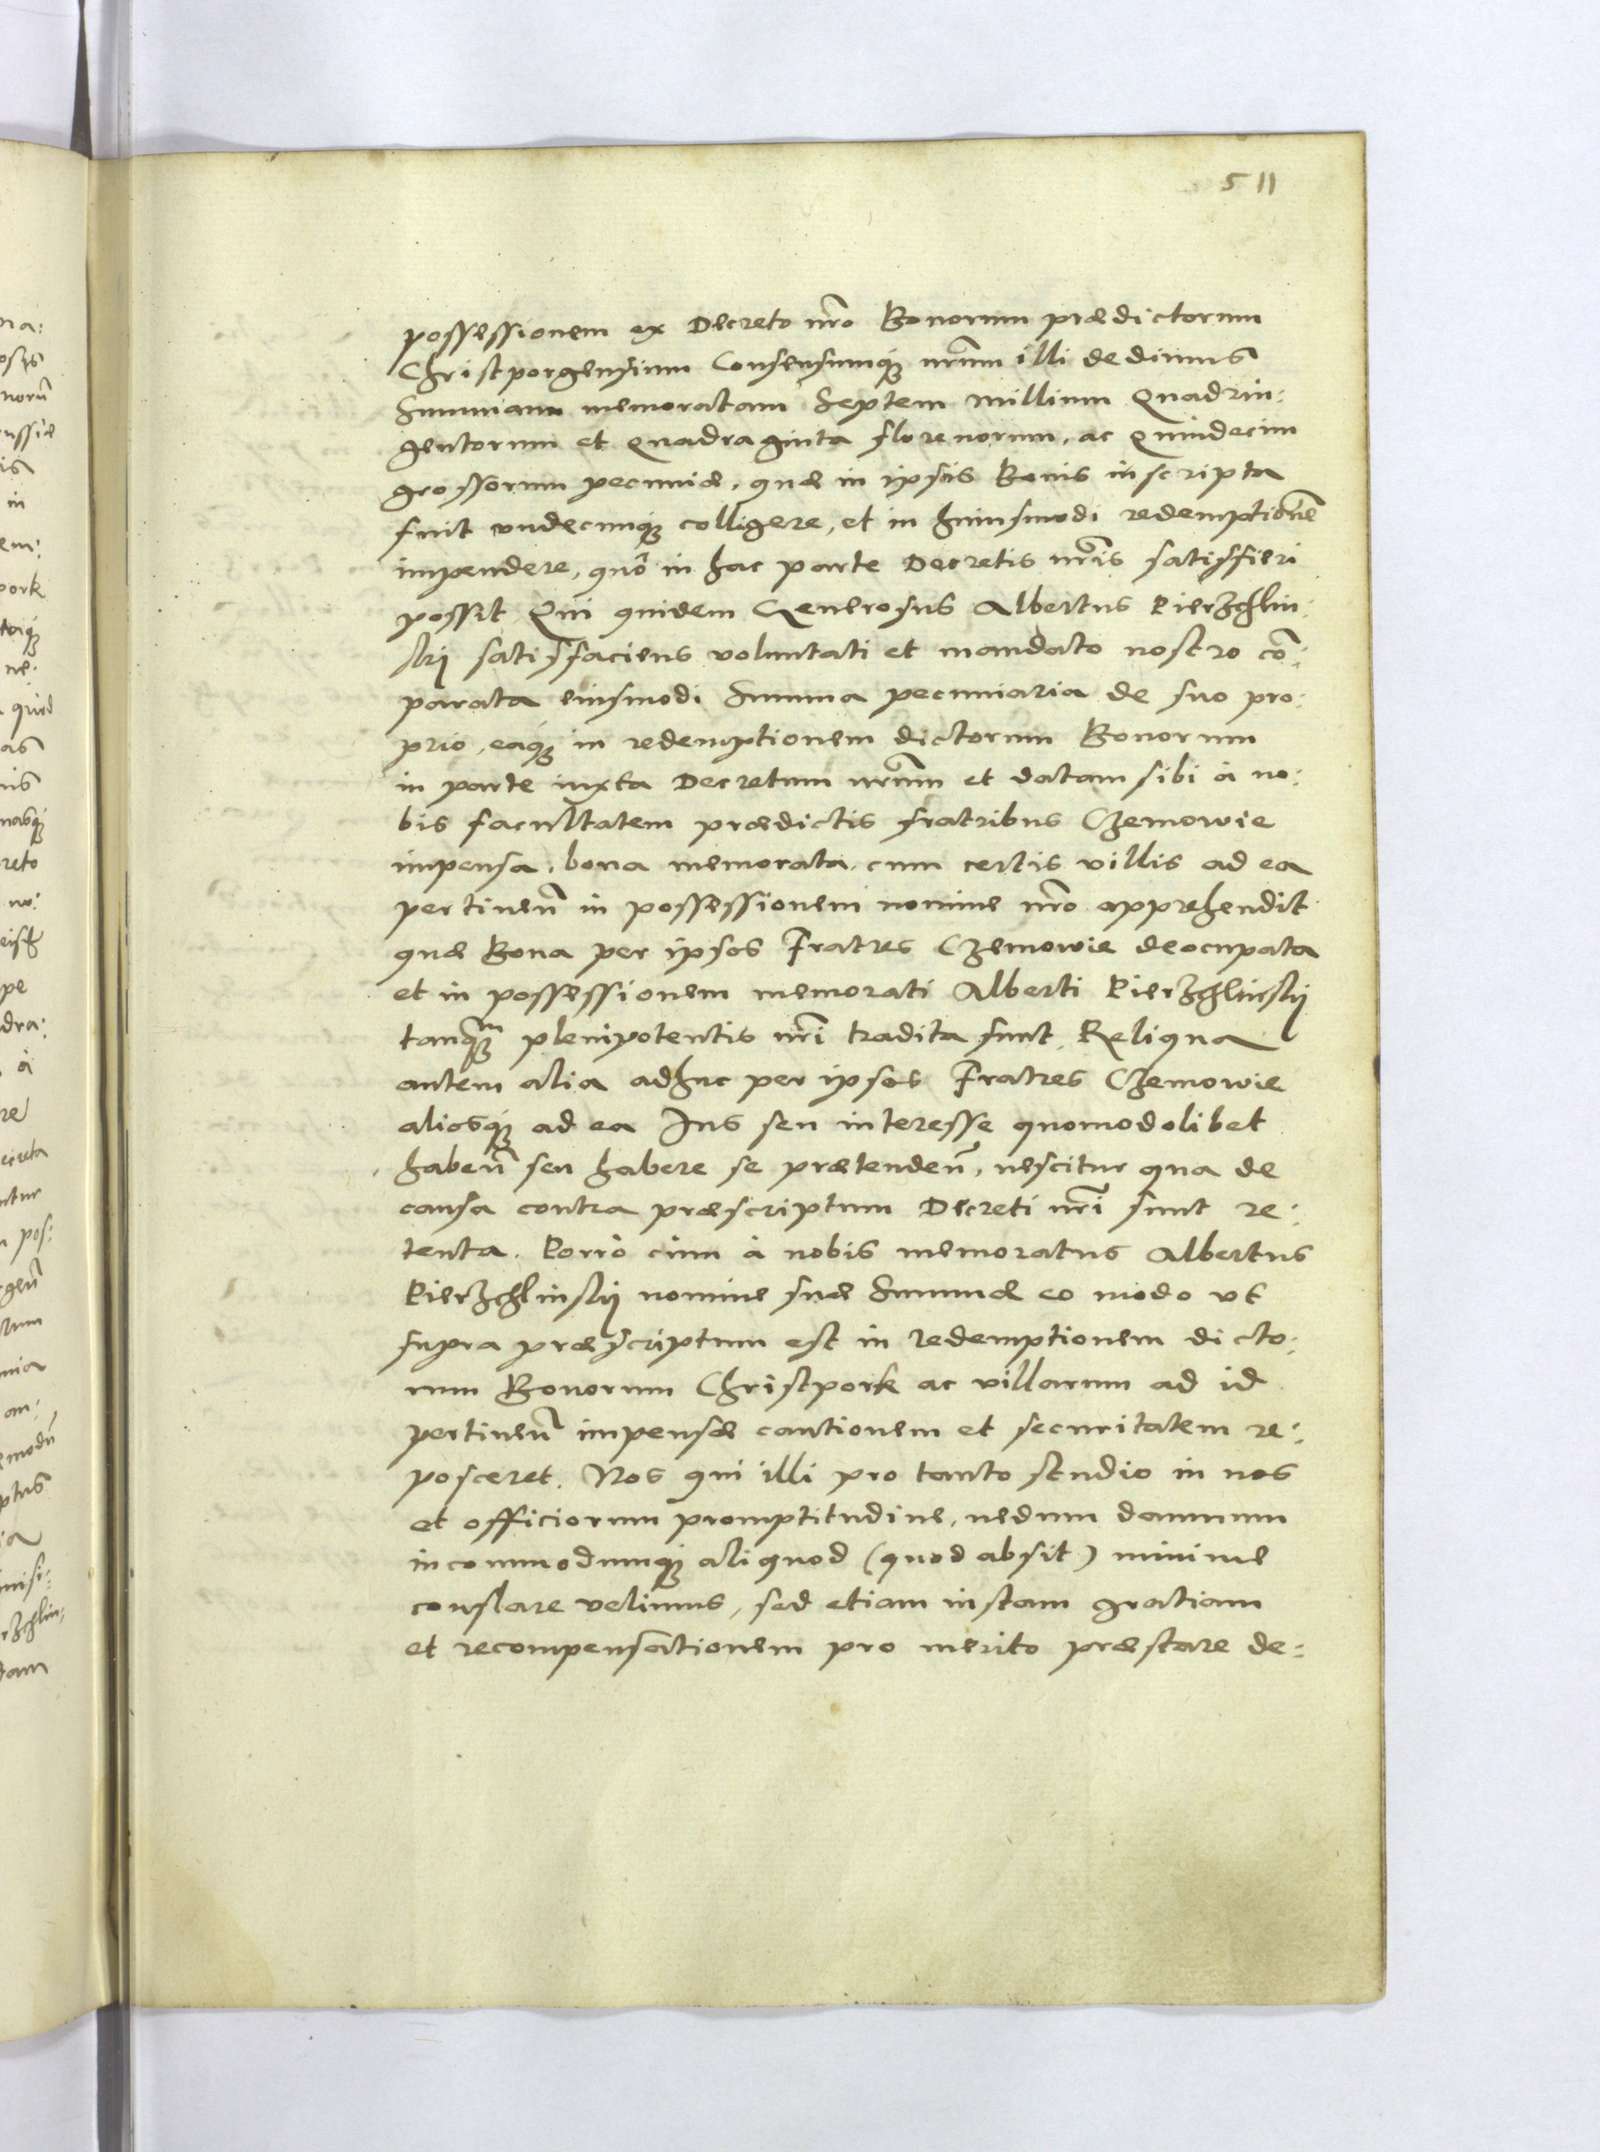 511
possessionem ex Decreto nr̃o Bonorum prædictorum
Christporgensium Consensumq́ꝫ nr̃um illi dedimus
Summam memoratam Septem millium Quadrin:
gentorum et Quadraginta florenorum, ac Quindecim
grossorum pecuniæ, quæ in ipsis Bonis inscripta
fuit undecunq́ꝫ colligere, et in huiusmodi redemptionẽ
impendere, quò in hac parte Decretis nr̃is satisfieri
possit. Qui quidem Generosus Albertus Pierzchlin:
skÿ satisfaciens voluntati et mandato nostro cõ:
parata eiusmodi Summa pecuniaria de suo pro:
prio, eaq́ꝫ in redemptionem dictorum Bonorum
in parte iuxta Decretum nr̃um et datam sibi à no:
bis facultatem prædictis fratribus Czemowie
impensa, bona memorata cum certis villis ad ea
pertineñ in possessionem nomine nr̃o apprehendit
quæ Bona per ipsos Fratres Czemowie deocupata
et in possessionem memorati Alberti Pierzchlinskÿ
tanqꝫᵐ plenipotentis nr̃i tradita sunt. Reliqua
autem alia adhuc per ipsos Fratres Czemowie
aliosq́ꝫ ad ea Ius seu interesse quomodolibet
habeñ seu habere se prætendeñ, nescitur qua de
causa contra præscriptum Decreti nr̃i sunt re:
tenta. Porrò cùm à nobis memoratus Albertus
Pierzchlinskÿ nomine suæ Summæ eo modo vt
supra præscriptum est in redemptionem dicto:
rum Bonorum Christpork ac villarum ad id
pertineñ impensæ cautionem et securitatem re:
posceret. Nos qui illi pro tanto studio in nos
et officiorum promptitudine, nedum damnum
incommodumq́ꝫ aliquod (quod absit) minime
constare velimus, sed etiam iustam gratiam
et recompensationem pro merito præstare de: